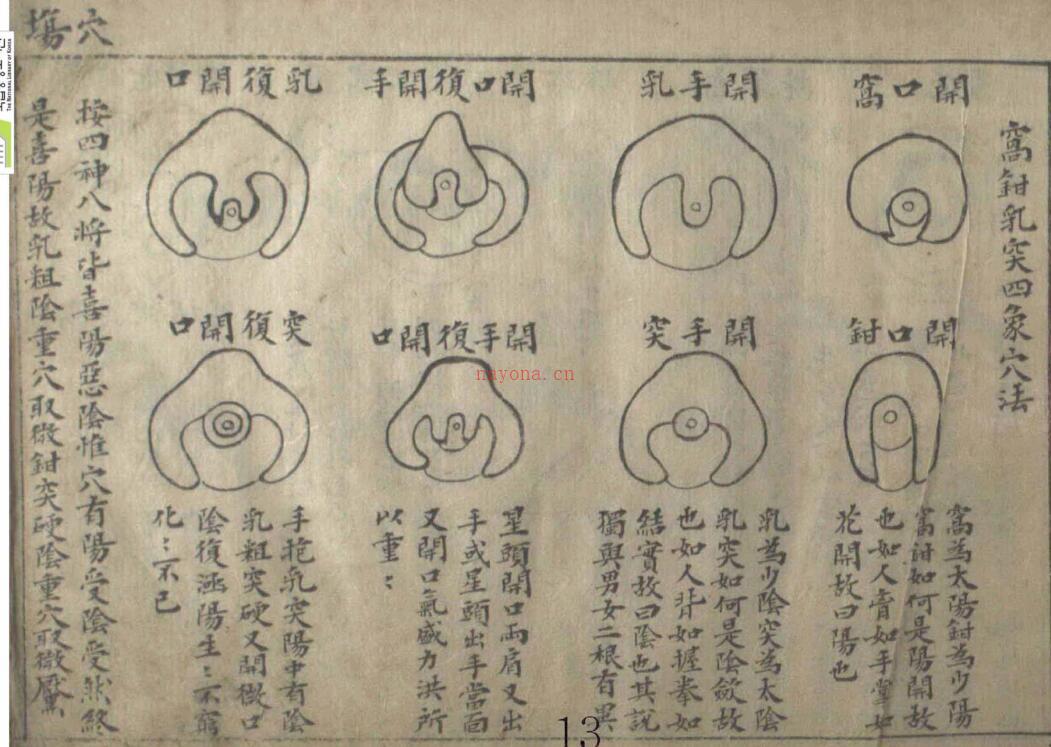 穴塲
窩鉗乳突四象穴法
窩口開
鉗口開
窩為太陽鉗為少陽
窩鉗如何是陽開故
也如人膏如手掌如
花開故曰陽也
乳手開
突手開
乳為少陰突為太陰
乳突如何是陰歛故
也如人背如握拳如
結實故曰陰也其說
獨與男女二根有異
手開復口開
口開復手開
星頭開口兩肩又出
手或星頭出手當面
又開口氣盛力洪所
以重〻
口開復乳
口開復突
手抱乳突陽中有陰
乳粗突硬又開微口
陰復涵陽生〻不窮
化〻不已
按四神八將皆喜陽惡陰惟穴有陽受陰受然終
是喜陽故乳粗陰重穴取微鉗突硬陰重穴取微靨
THE NATIONAL LIBRARY OF KOREA
nayona.cn
13